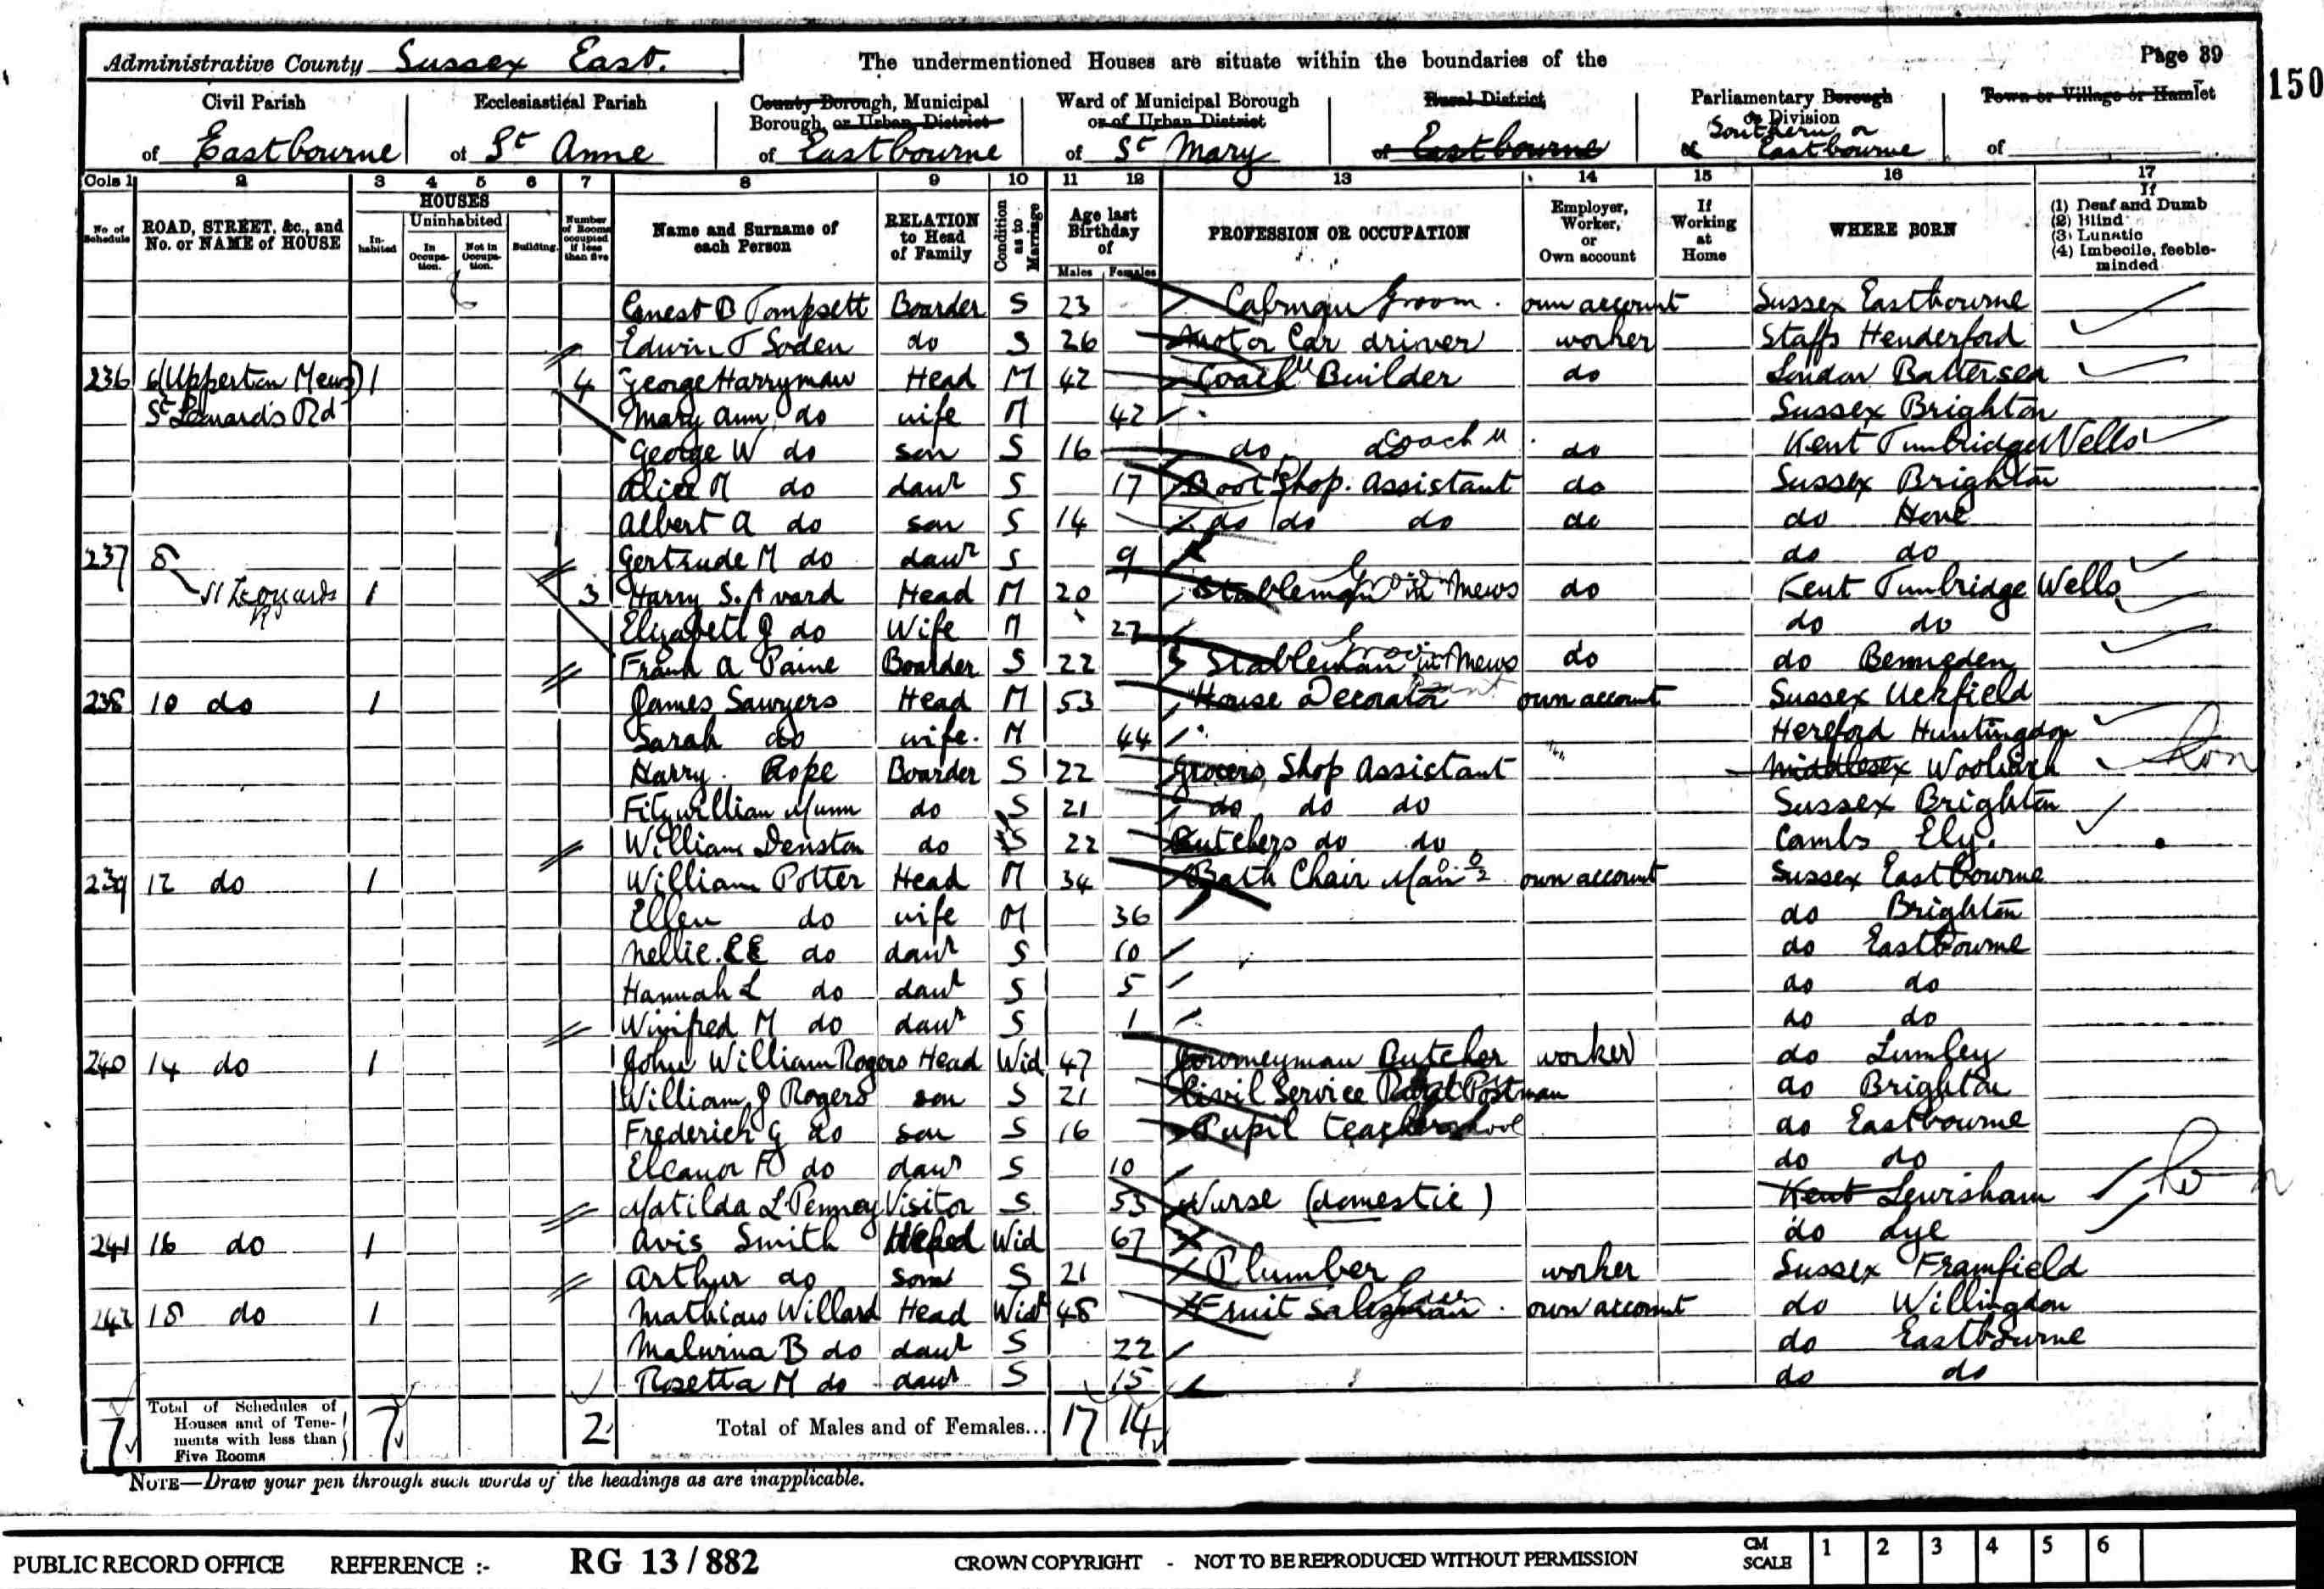 Administrative County Sussex East. The undermentioned Houses are situate within the boundaries of the Page 39
150
Civil Parish of Eastbourne
Ecclesiastical Parish of St Anne
County Borough, Municipal Borough, or Urban District of Eastbourne
Ward of Municipal Borough or of Urban District of St Mary
Rural District of Eastbourne
Parliamentary Borough or Division of Southern or Eastbourne
Town or Village or Hamlet of
Cols 1 2 3 4 5 6 7 8 9 10 11 12 13 14 15 16 17
No. of Schedule
ROAD, STREET, &c., and No. or NAME of HOUSE
HOUSES
Inhabited
Uninhabited
In Occupation.
Not in Occupation.
Building.
Number of Rooms occupied if less than five
Name and Surname of each Person
RELATION to Head of Family
Condition as to Marriage
Age last Birthday of
Males Females
PROFESSION OR OCCUPATION
Employer, Worker, or Own account
If Working at Home
WHERE BORN
If (1) Deaf and Dumb (2) Blind (3) Lunatic (4) Imbecile, feeble-minded
Ernest B Tompsett Boarder S 23 Cabman Groom own account Sussex Eastbourne
Edwin T Soden do S 26 Motor Car driver worker Staffs Henderford
236 6 (Upperton Mews) 1 4 George Harryman Head M 42 Coach Builder do London Battersea
St Leonards Rd Mary Ann do wife M 42 Sussex Brighton
George W do son S 16 do Coach do Kent Tunbridge Wells
Alice M do daur S 17 Boot Shop. Assistant do Sussex Brighton
Albert A do son S 14 do do do do do Hove
237 8 Gertrude M do daur S 9 do do
St Leonards Rd 1 3 Harry S. Avard Head M 20 Stableman Groom in Mews do Kent Tunbridge Wells
Elizabeth J do Wife M 27 do do
Frank A Paine Boarder S 22 Stableman Groom in Mews do do Benneden
238 10 do 1 James Sawyers Head M 53 House Decorator Paint own account Sussex Uckfield
Sarah do wife. M 44 Hereford Huntingdon
Harry. Rope Boarder S 22 Grocers Shop Assistant Middlesex Woolwich Lon
Fitzwilliam Munn do S 21 do do do Sussex Brighton
William Denston do S 22 Butchers do do Cambs Ely.
239 12 do 1 William Potter Head M 34 Bath Chair Man own account Sussex Eastbourne
Ellen do wife M 36 do Brighton
Nellie. E E do daur S 10 do Eastbourne
Hannah L do daur S 5 do do
Winifred M do daur S 1 do do
240 14 do 1 John William Rogers Head Wid 47 Journeyman Butcher worker do Lumley
William J Rogers son S 21 Civil Service Rural Postman do Brighton
Frederick G do son S 16 Pupil teacher school do Eastbourne
Eleanor F do daur S 10 do do
Matilda L Penney Visitor S 53 Nurse (domestic) Kent Lewisham Lon
241 16 do 1 Avis Smith Head Wid 67 do Lye
Arthur do son S 21 Plumber worker Sussex Framfield
242 18 do 1 Mathias Willard Head Widr 48 Fruit Salesman own account do Willingdon
Malvina B do daur S 22 do Eastbourne
Rosetta M do daur S 15 do do
7 Total of Schedules of Houses and of Tenements with less than Five Rooms 7 2 Total of Males and of Females... 17 14
NOTE—Draw your pen through such words of the headings as are inapplicable.
PUBLIC RECORD OFFICE REFERENCE :- RG 13 / 882 CROWN COPYRIGHT - NOT TO BE REPRODUCED WITHOUT PERMISSION CM SCALE 1 2 3 4 5 6